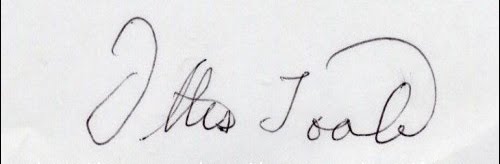 Ottis Toole